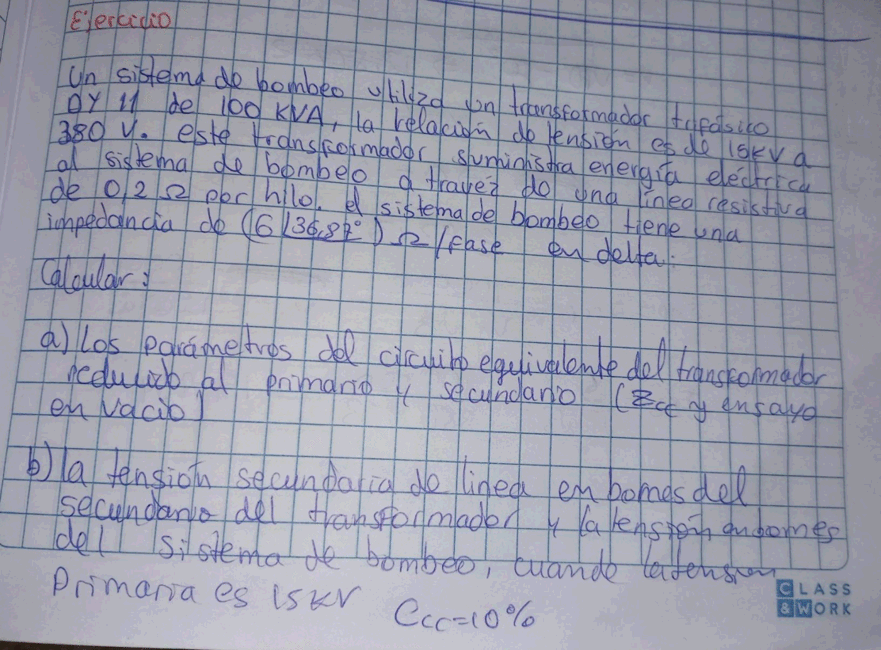 Ejercicio
Un sistema de bombeo utiliza un transformador trifásico
DY 11 de 100 KVA, la relación de tensión es de 15KV a
380 V. este transformador suministra energía eléctrica
al sistema de bombeo a travez de una línea resistiva
de 0,2 Ω por hilo, el sistema de bombeo tiene una
impedancia de (6∠36,87°) Ω/fase en delta.
Calcular:
a) Los parámetros del circuito equivalente del transformador
reducido al primario y secundario (Zcc y ensayo
en vacio)
b) la tensión secundaria de linea en bornes del
secundario del transformador y la tensión en bornes
del sistema de bombeo, cuando la tension
Primaria es 15KV Ccc=10%
CLASS
&WORK